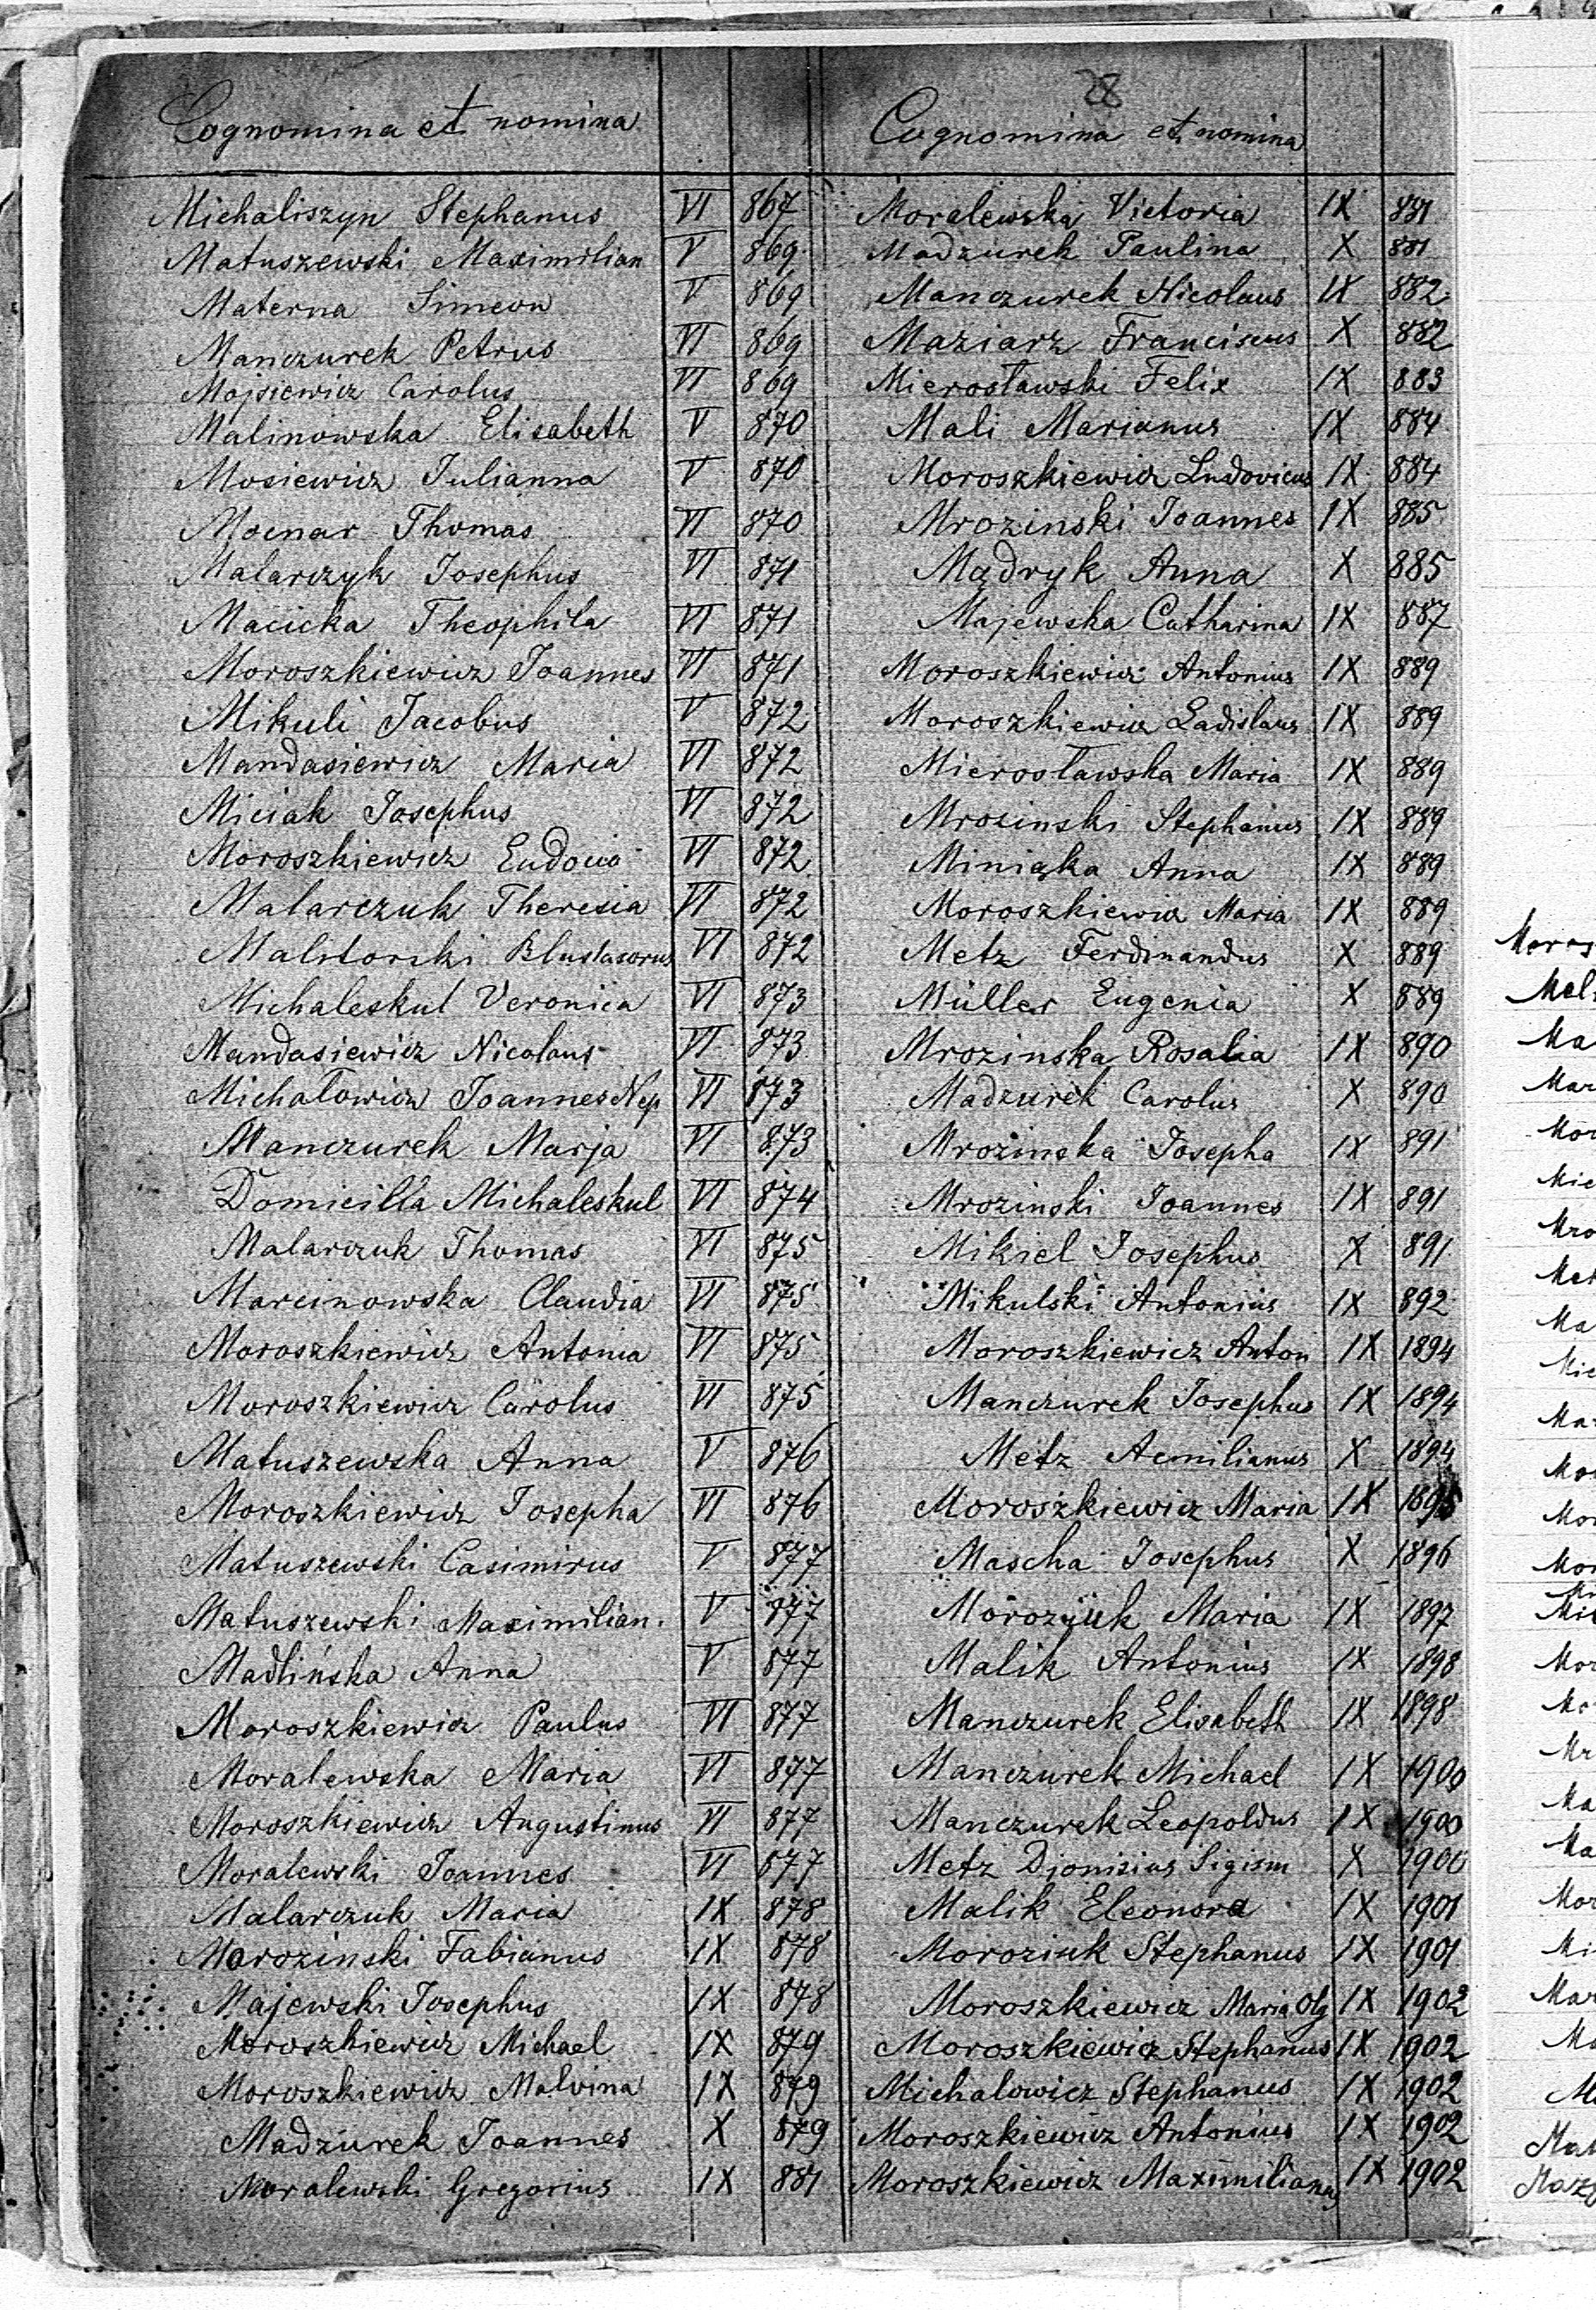 28
Cognomina et nomina
Michaliszyn Stephanus VI 867
Matuszewski Maximilian V 869
Materna Simeon V 869
Manczurek Petrus VI 869
Mojsiewicz Carolus VI 869
Malinowska Elisabeth V 870
Mosiewicz Julianna V 870
Mocnar Thomas VI 870
Malarczyk Josephus VI 871
Macicka Theophila VI 871
Moroszkiewicz Joannes VI 871
Mikuli Jacobus V 872
Mandasiewicz Maria VI 872
Miciak Josephus VI 872
Moroszkiewicz Eudocia VI 872
Malarczuk Theresia VI 872
VI 872
Michaleskul Veronica VI 873
Mandasiewicz Nicolaus VI 873
Michałowicz Joannes Nep VI 873
Manczurek Marja VI 873
Domicilla Michaleskul VI 874
Malarczuk Thomas VI 875
Marcinowska Claudia VI 875
Moroszkiewicz Antonia VI 875
Moroszkiewicz Carolus VI 875
Matuszewska Anna V 876
Moroszkiewicz Josepha VI 876
Matuszewski Casimirus V 877
Matuszewski Maximilian. V 877
Madlińska Anna V 877
Moroszkiewicz Paulus VI 877
Moralewska Maria VI 877
Moroszkiewicz Augustinus VI 877
Moralewski Joannes VI 877
Malarczuk Maria IX 878
Marozinski Fabianus IX 878
Majewski Josephus IX 878
Moroszkiewicz Michael IX 879
Moroszkiewicz Malvina IX 879
Madzurek Joannes X 879
Moralewski Gregorius IX 881
Cognomina et nomina
Moralewska Victoria IX 881
Madzurek Paulina X 881
Manczurek Nicolaus IX 882
Maziarz Franciscus X 882
Mierosławski Felix IX 883
Mali Marianus IX 884
Moroszkiewicz Ludovicus IX 884
Mrozinski Joannes IX 885
Mądryk Anna X 885
Majewska Catharina IX 887
Moroszkiewicz Antonius IX 889
Moroszkiewicz Ladislaus IX 889
Mierosławska Maria IX 889
Mrozinski Stephanus IX 889
Miniąka Anna IX 889
Moroszkiewicz Maria IX 889
Metz Ferdinandus X 889
Müller Eugenia X 889
Mrozinska Rosalia IX 890
Madzurek Carolus X 890
Mrozinska Josepha IX 891
Mrozinski Joannes IX 891
Mikiel Josephus X 891
Mikulski Antonius IX 892
Moroszkiewicz Anton IX 1894
Manczurek Josephus IX 1894
Metz Aemilianus X 1894
Moroszkiewicz Maria IX 1895
Mascha Josephus X 1896
Moroziuk Maria IX 1897
Malik Antonius IX 1898
Manczurek Elisabeth IX 1898
Manczurek Michael IX 1900
Manczurek Leopoldus IX 1900
Metz Djonizius Sigism X 1900
Malik Eleonora IX 1901
Moroziuk Stephanus IX 1901
Moroszkiewicz Maria Olg IX 1902
Moroszkiewicz Stephanus IX 1902
Michalowicz Stephanus IX 1902
Moroszkiewicz Antonius IX 1902
Moroszkiewicz Maximilianus IX 1902